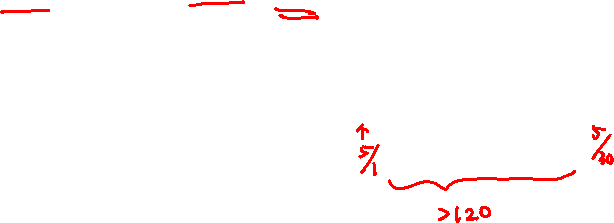 5/1
5/30
>120